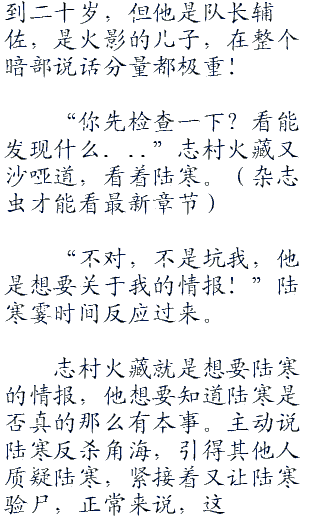 到二十岁，但他是队长辅
佐，是火影的儿子，在整个
暗部说话分量都极重！
“你先检查一下？看能
发现什么．．．”志村火藏又
沙哑道，看着陆寒。（杂志
虫才能看最新章节）
“不对，不是坑我，他
是想要关于我的情报！”陆
寒霎时间反应过来。
志村火藏就是想要陆寒
的情报，他想要知道陆寒是
否真的那么有本事。主动说
陆寒反杀角海，引得其他人
质疑陆寒，紧接着又让陆寒
验尸，正常来说，这